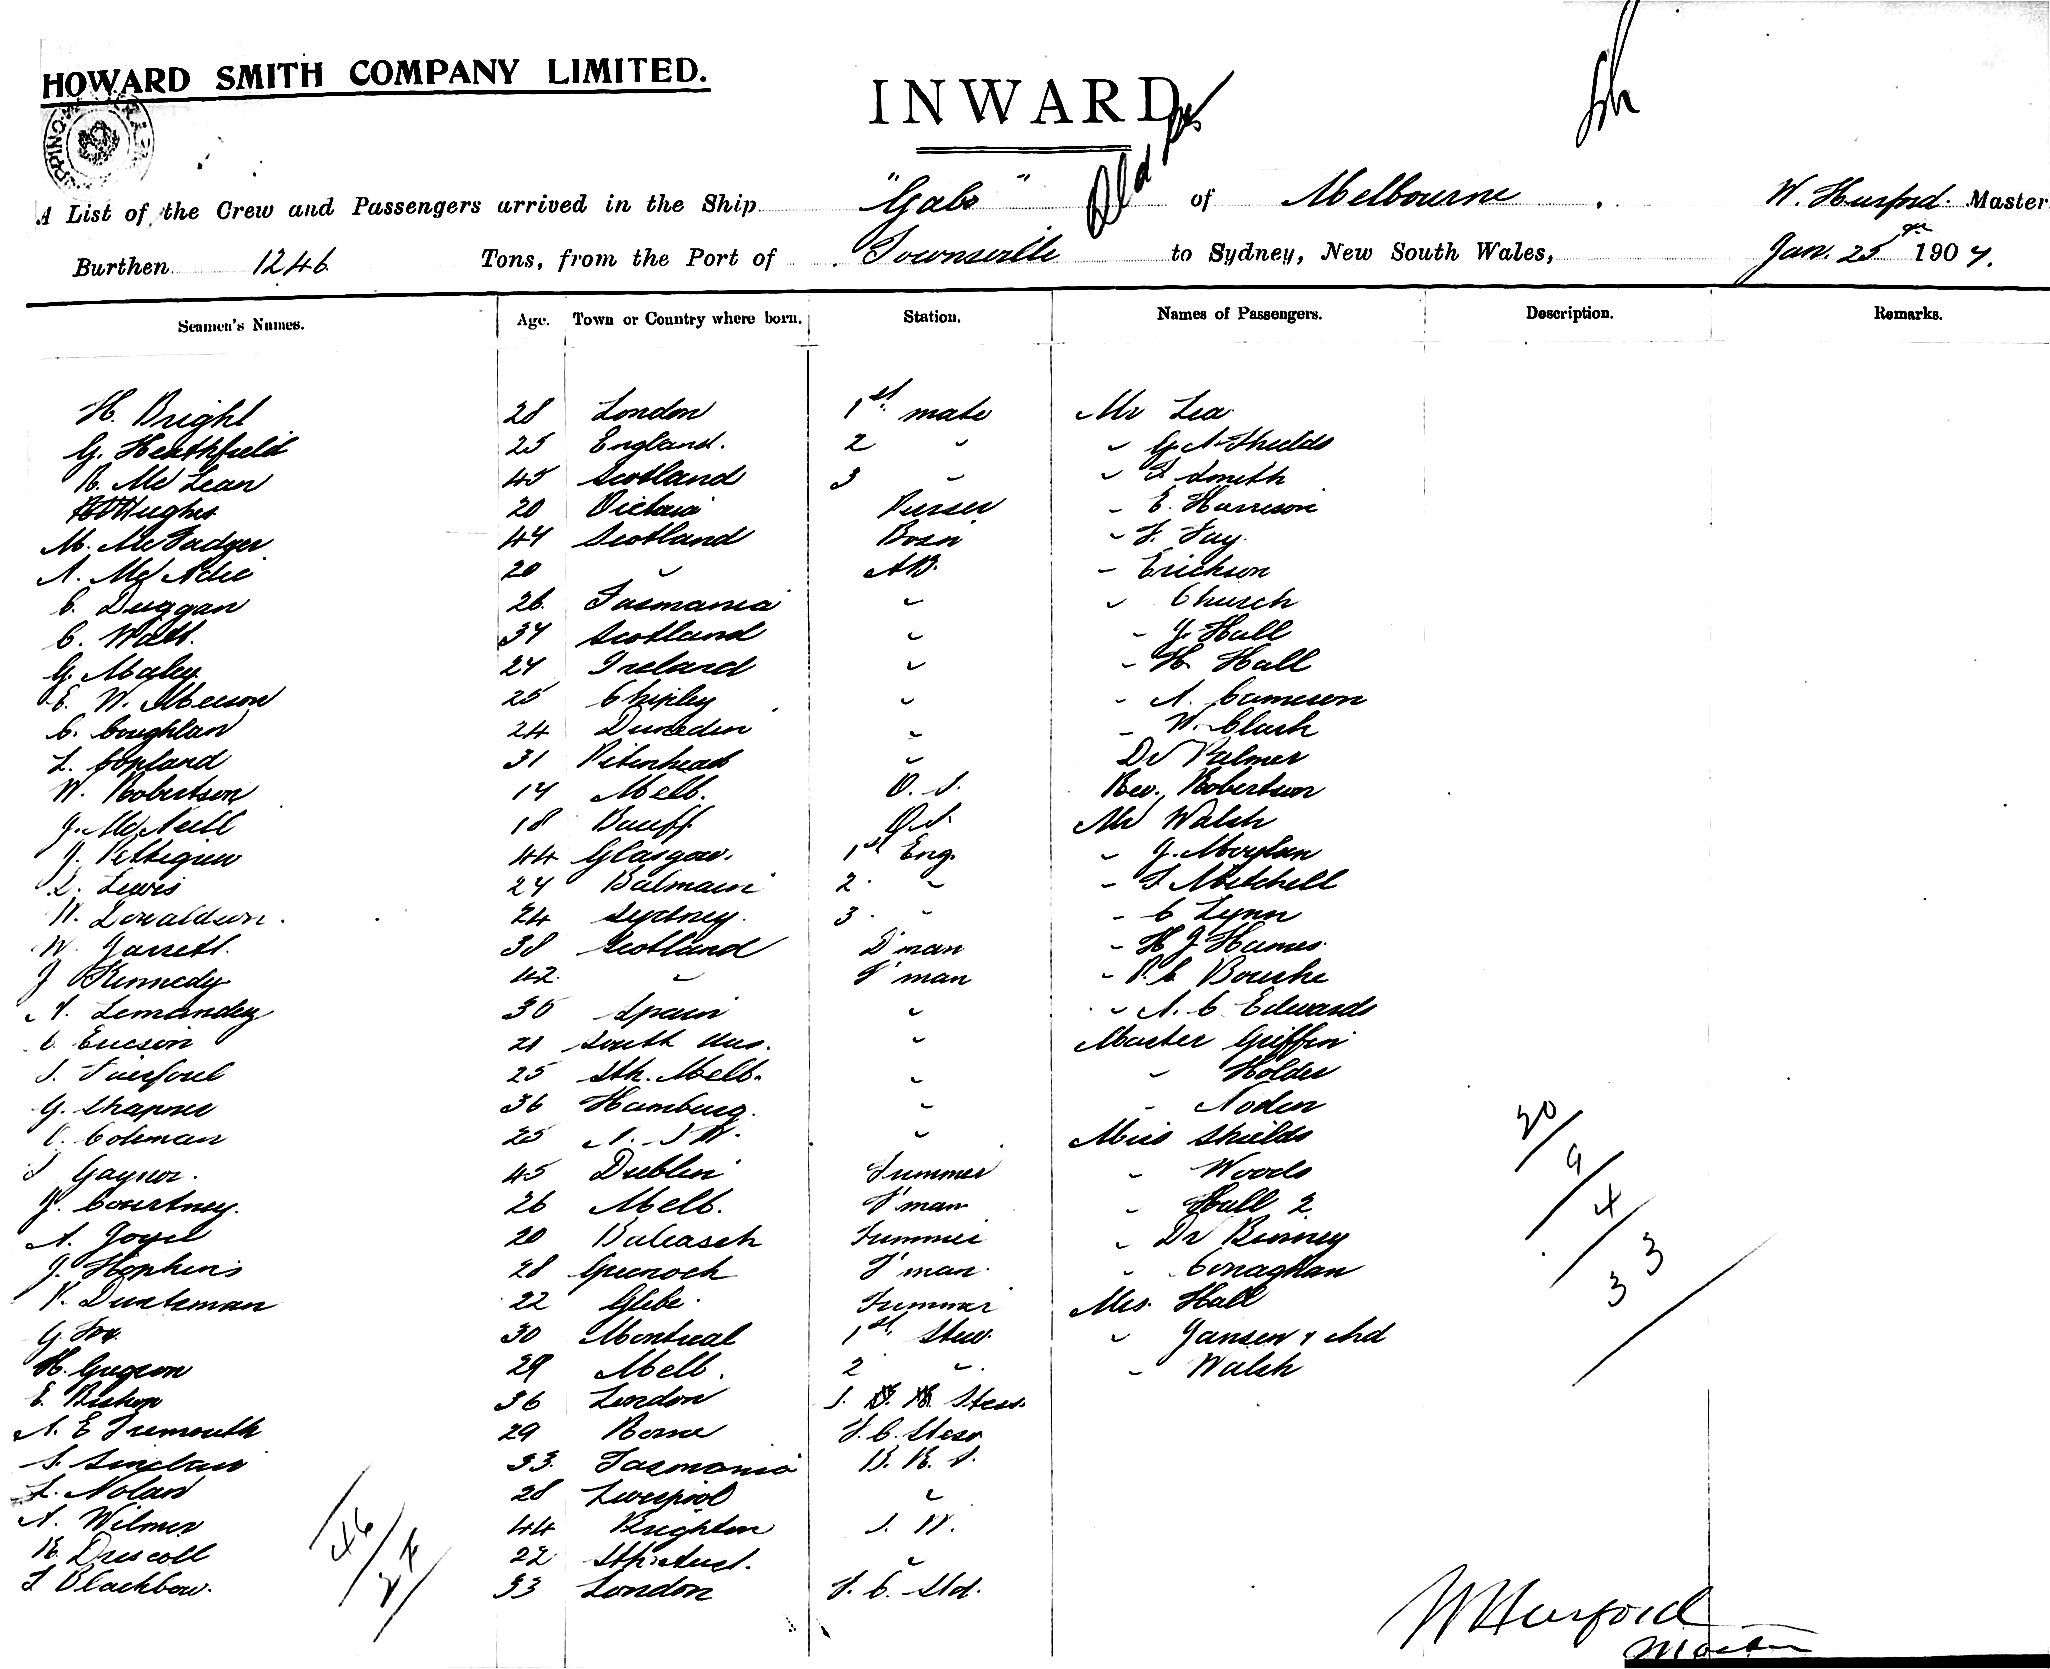 HOWARD SMITH COMPANY LIMITED.
INWARD
A List of the Crew and Passengers arrived in the Ship "Gabo" of Melbourne W. Hurford. Master
Burthen 1246 Tons, from the Port of Townsville to Sydney, New South Wales, Jan. 25th 1907.
Seamen's Names. Age. Town or Country where born. Station. Names of Passengers. Description. Remarks.
H. Bright 28 London 1st mate Mr Lea
G. Heathfield 25 England. 2 " " G. A. Shields
R. McLean 45 Scotland 3 " " Smith
Hughes 20 Victoria Purser " E. Harrison
M. McFadyer 44 Scotland Bosn " F. Fay.
A. McAdie 20 " AB. " Erickson
C. Duggan 26 Tasmania " " Church
C. Watt. 34 Scotland " " J. Hall
G. Maley 24 Ireland " " H. Hall
E. W. 25 Shipley " " A. Cameron
C. Coughlan 24 Dunedin " " W. Clark
L. Copland 31 " Dr Palmer
W. Robertson 17 Melb. O. S. Rev. Robertson
J. McNeill 18 Banff O.S. Mr Walsh
J. Pettigrew 44 Glasgow. 1st Eng. " J. Moylan
L. Lewis 27 Balmain 2. " " Mitchell
W. Donaldson. 24 Sydney. 3. " " C Lynn
W. Jarrett. 38 Scotland D'man " H J Hames.
J Kennedy 42. " F'man " P. C Bourke
30 Spain " " A. C Edwards
C Ericson 21 South Aus. " Master Griffin
S. Fairfoul 25 Sth. Melb. " " Holder
G. 36 Hamburg. " " Noden
C. Coleman 25 N. S W. " Miss Shields
Gaynor. 45 Dublin Trimmer " Woods
Courtney. 26 Melb. F'man " Hall 2
A. 20 Trimmer " Dr Binney
J. Hopkins 28 Greenock F'man. " Conaghan
22 Glebe. Trimmer Mrs. Hall
G Fox 30 Montreal 1st Stew. " Jansen & chd
H. 29 Melb. 2 " " Walsh
E. Bishop 36 London Stew.
A. E Tremouth 29 F. C. Stew
S. Sinclair 33. Tasmania B. R. S.
L. Nolan 28 Liverpool "
A. Wilmer 44 Brighton S. W.
R. Driscoll 22 Sth. Aust. "
Blackbow. 33 London F. C. Std.
20
9
4
33
W Hurford
Master